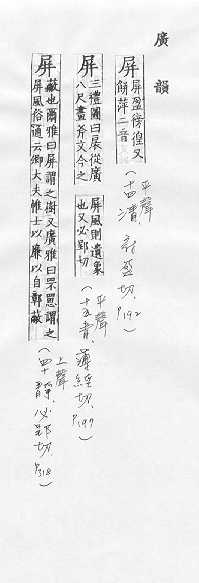 廣韻
屏 屏盈傍徨又
餅萍二音
(平聲
十四清.府盈切.P192)
屏 三禮圖曰扆從廣
八尺畫斧文今之
屏風則遺象
也又必郢切
(平聲
十五青.薄經切.P197)
屏 蔽也爾雅曰屏謂之樹又廣雅曰罘罳謂之
屏風俗通云卿大夫帷士以廉以自鄣蔽
(上聲
四十靜.必郢切.P318)